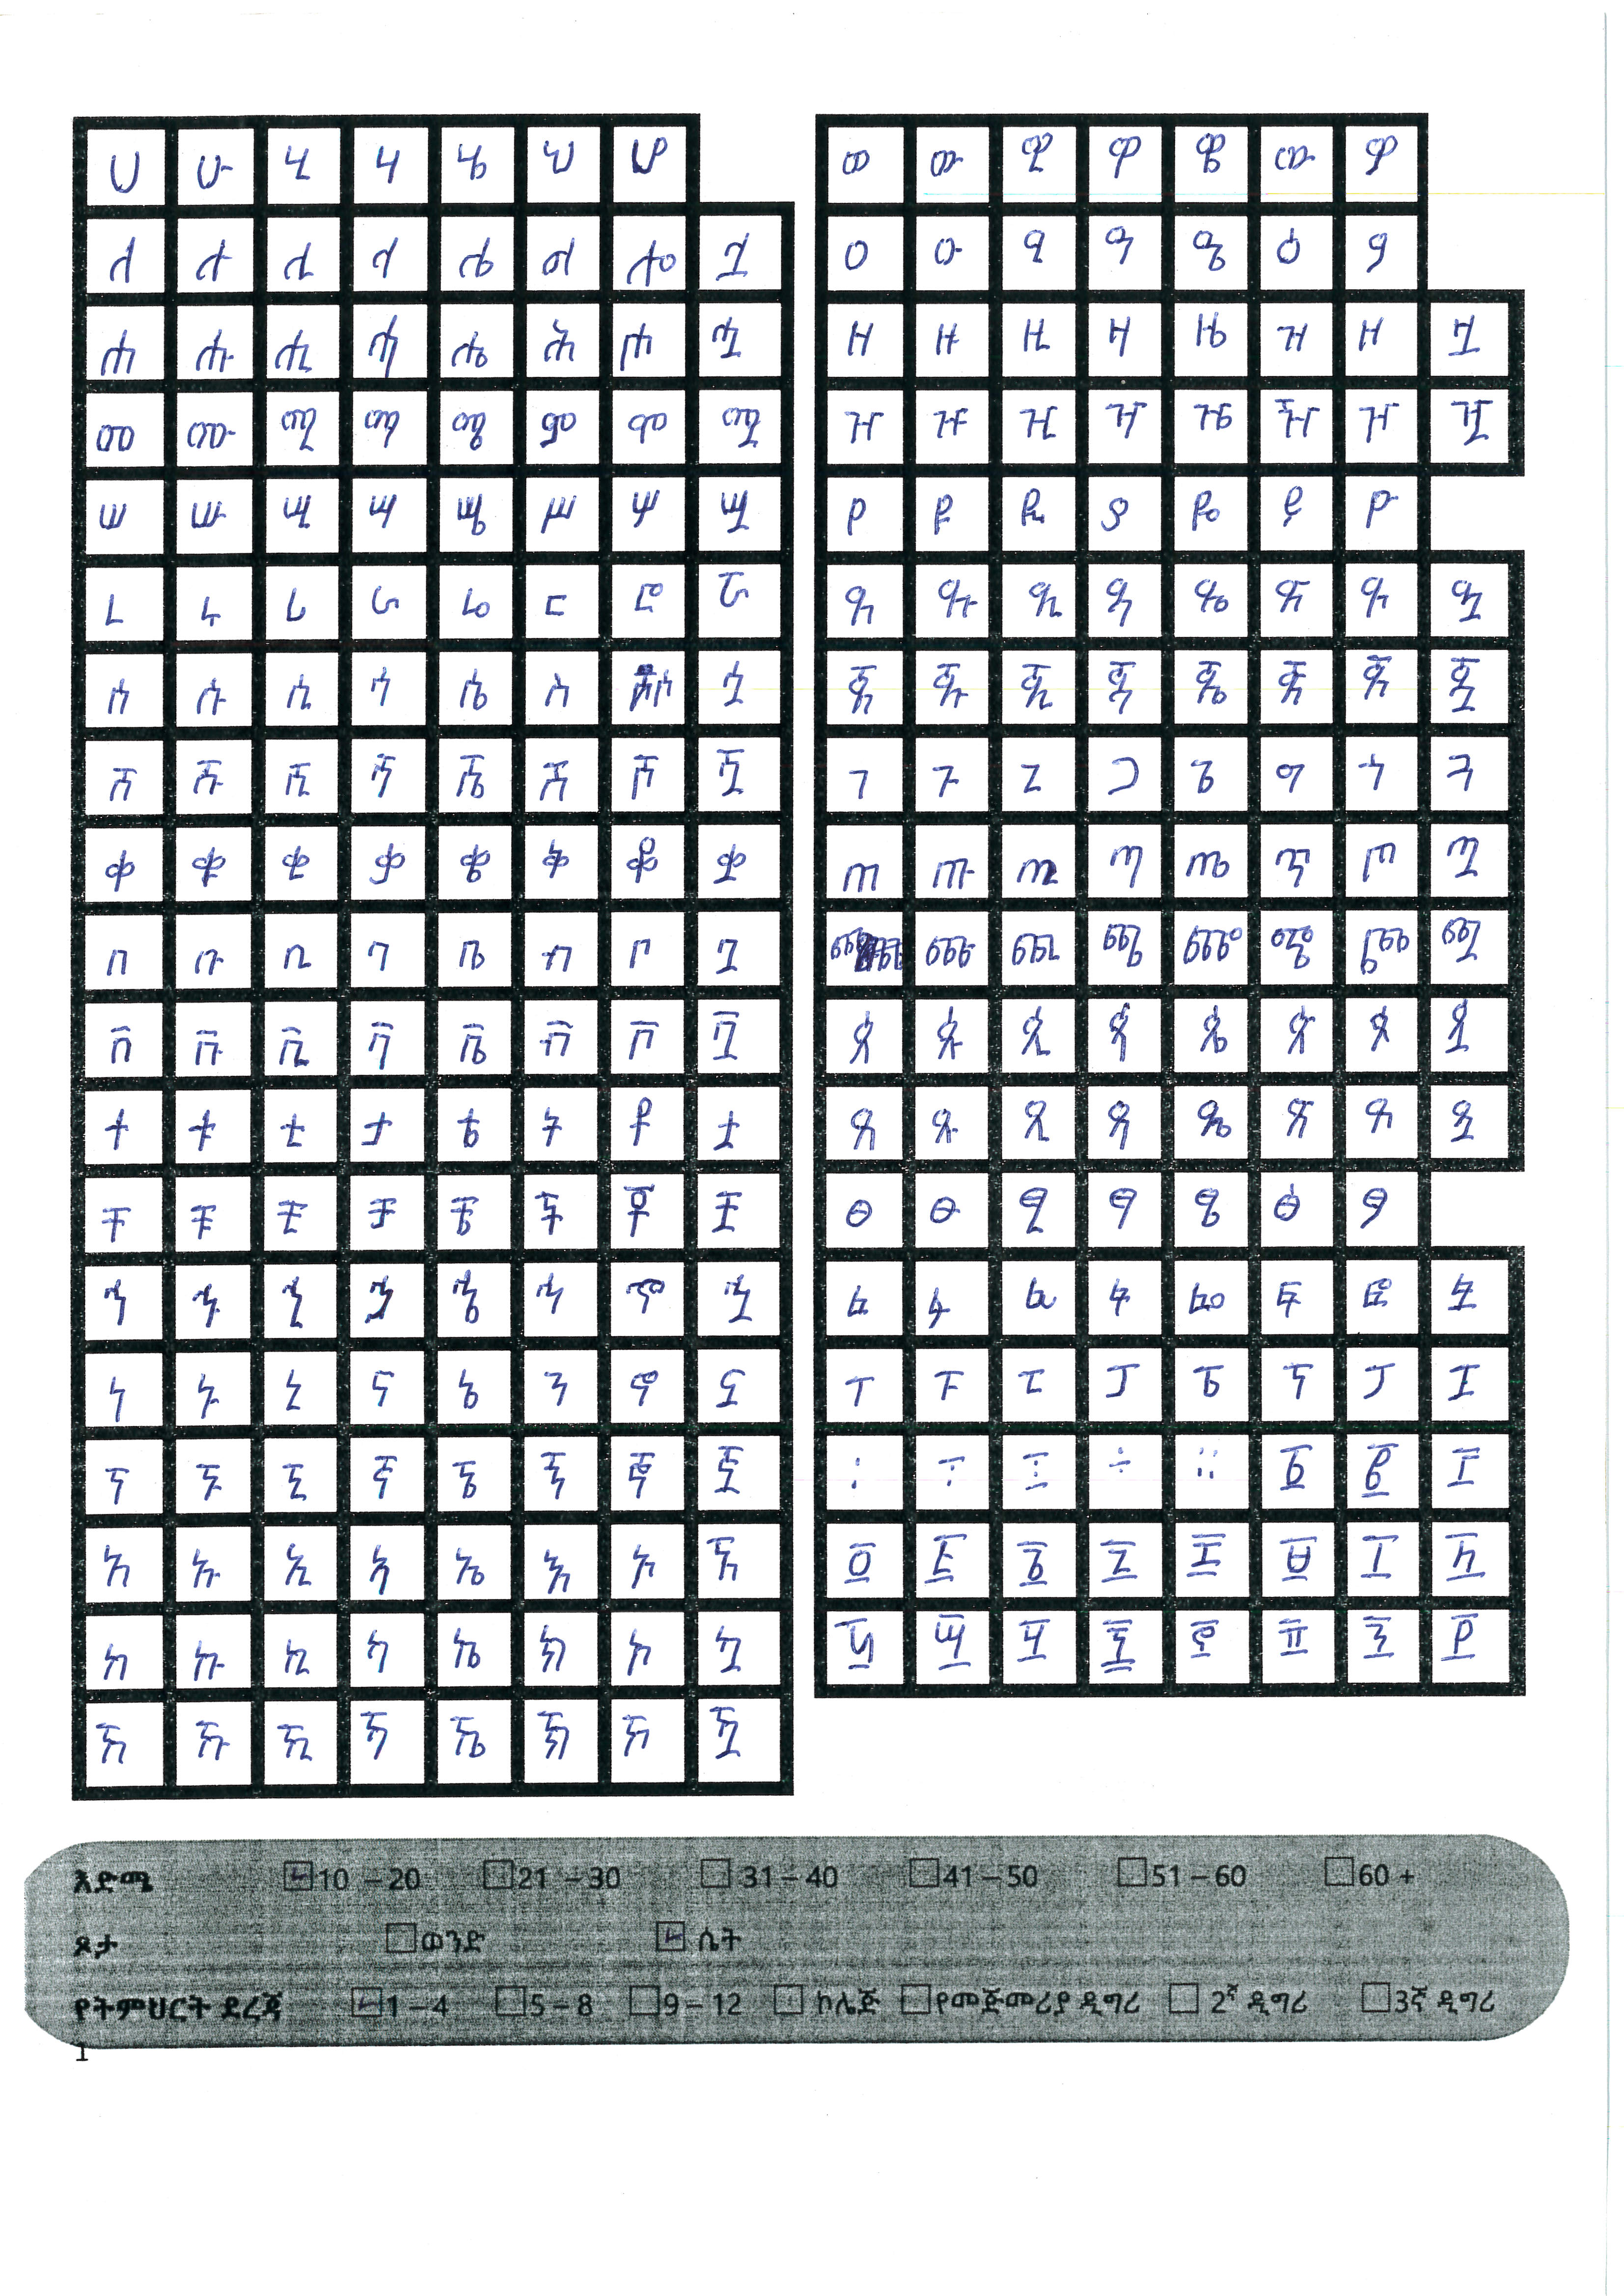 ሀ ሁ ሂ ሃ ሄ ህ ሆ
ለ ሉ ሊ ላ ሌ ል ሎ ሏ
ሐ ሑ ሒ ሓ ሔ ሕ ሖ ሗ
መ ሙ ሚ ማ ሜ ም ሞ ሟ
ሠ ሡ ሢ ሣ ሤ ሥ ሦ ሧ
ረ ሩ ሪ ራ ሬ ር ሮ ሯ
ሰ ሱ ሲ ሳ ሴ ስ ሶ ሷ
ሸ ሹ ሺ ሻ ሼ ሽ ሾ ሿ
ቀ ቁ ቂ ቃ ቄ ቅ ቆ ቋ
በ ቡ ቢ ባ ቤ ብ ቦ ቧ
ቨ ቩ ቪ ቫ ቬ ቭ ቮ ቯ
ተ ቱ ቲ ታ ቴ ት ቶ ቷ
ቸ ቹ ቺ ቻ ቼ ች ቾ ቿ
ኀ ኁ ኂ ኃ ኄ ኅ ኆ ኋ
ነ ኑ ኒ ና ኔ ን ኖ ኗ
ኘ ኙ ኚ ኛ ኜ ኝ ኞ ኟ
አ ኡ ኢ ኣ ኤ እ ኦ ኧ
ከ ኩ ኪ ካ ኬ ክ ኮ ኳ
ኸ ኹ ኺ ኻ ኼ ኽ ኾ ዃ
ወ ዉ ዊ ዋ ዌ ው ዎ
ዐ ዑ ዒ ዓ ዔ ዕ ዖ
ዘ ዙ ዚ ዛ ዜ ዝ ዞ ዟ
ዠ ዡ ዢ ዣ ዤ ዥ ዦ ዧ
የ ዩ ዪ ያ ዬ ይ ዮ
ደ ዱ ዲ ዳ ዴ ድ ዶ ዷ
ጀ ጁ ጂ ጃ ጄ ጅ ጆ ጇ
ገ ጉ ጊ ጋ ጌ ግ ጎ ጓ
ጠ ጡ ጢ ጣ ጤ ጥ ጦ ጧ
ጨ ጩ ጪ ጫ ጬ ጭ ጮ ጯ
ጰ ጱ ጲ ጳ ጴ ጵ ጶ ጷ
ጸ ጹ ጺ ጻ ጼ ጽ ጾ ጿ
ፀ ፁ ፂ ፃ ፄ ፅ ፆ
ፈ ፉ ፊ ፋ ፌ ፍ ፎ ፏ
ፐ ፑ ፒ ፓ ፔ ፕ ፖ ፗ
፡ ፣ ፤ ÷ ፡፡ ፩ ፪ ፫
፬ ፭ ፮ ፯ ፰ ፱ ፲ ፳
፴ ፵ ፶ ፷ ፸ ፹ ፺ ፻
እድሜ 10 – 20 21 – 30 31 – 40 41 – 50 51 – 60 60 +
ጾታ ወንድ ሴት
የትምህርት ደረጃ 1 – 4 5 – 8 9 – 12 ኮሌጅ የመጀመሪያ ዲግሪ 2ኛ ዲግሪ 3ኛ ዲግሪ
1